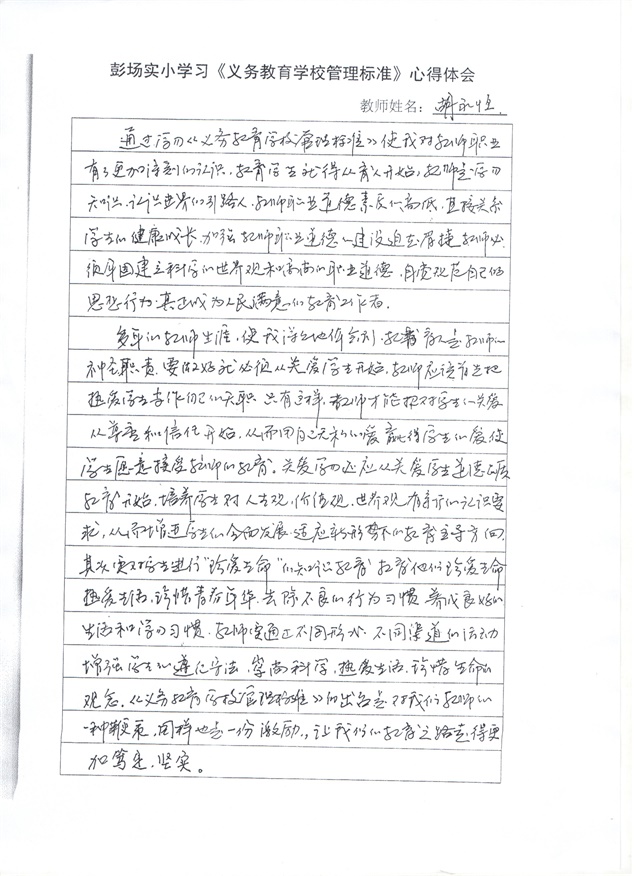 彭场实小学习《义务教育学校管理标准》心得体会
教师姓名：
通过学习《义务教育学校管理标准》使我对教师职业
有了更加深刻的认识，教育学生就得从育人开始，教师是学习
知识、认识世界的引路人，教师职业道德素质的高低，直接关系
学生的健康成长，加强教师职业道德的建设迫在眉捷，教师必
须牢固建立科学的世界观和高尚的职业道德，自觉规范自己的
思想行为，真正成为人民满意的教育工作者。
多年的教师生涯，使我深深地体会到，教书育人是教师的
神圣职责，要做好就必须从关爱学生开始，教师应该首先把
热爱学生当作自己的天职，只有这样，教师才能把对学生的关爱
从尊重和信任开始，从而用自己无私的爱赢得学生的爱使
学生愿意接受教师的教育。关爱学习还应从关爱学生道德品质
教育开始，培养学生对人生观，价值观，世界观有新的认识要
求，从而增进学生的全面发展，适应新形势下的教育主导方向。
其次要对学生进行“珍爱生命”的知识教育，教育他们珍爱生命
热爱生活，珍惜青春年华，去除不良的行为习惯，养成良好的
生活和学习习惯，教师要通过不同形式，不同渠道的活动
增强学生的遵纪守法，崇尚科学，热爱生活，珍惜生命的
观念，《义务教育学校管理标准》的出台是对我们教师的
一种鞭策，同样也是一份激励，让我们的教育之路走得更
加笃定，坚实。